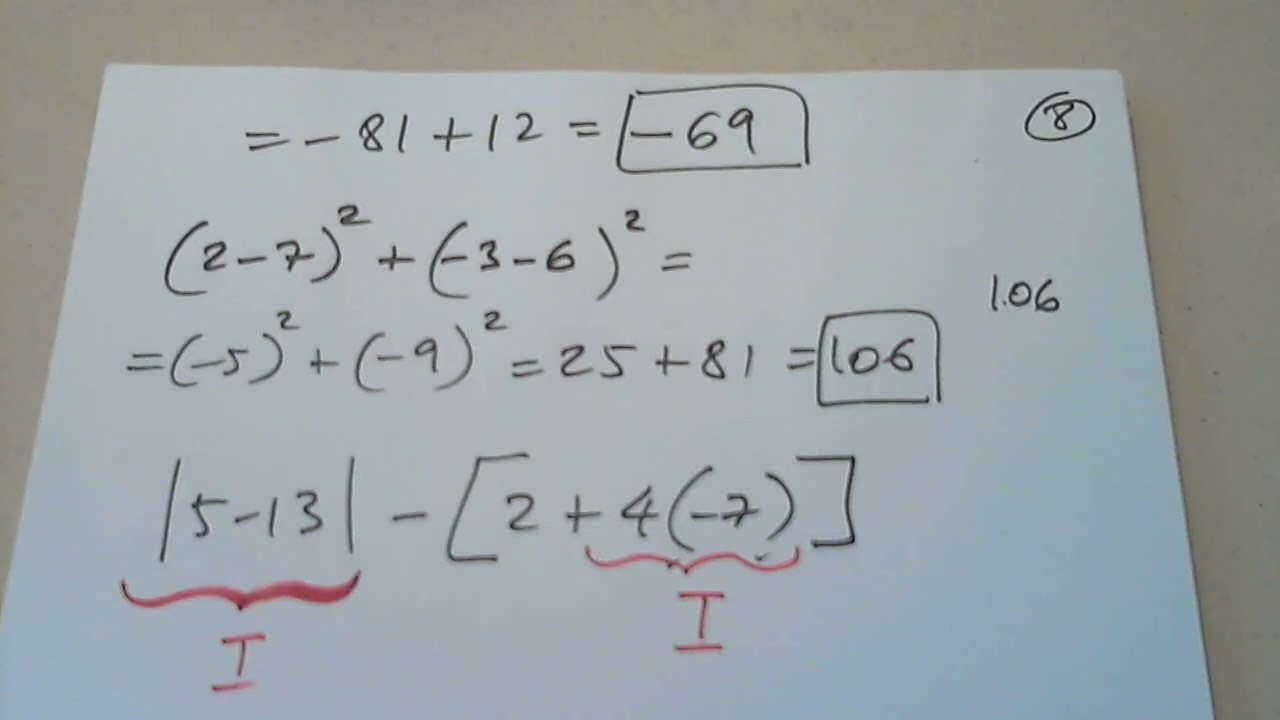 = - 81 + 12 = -69
8
(2-7)² + (-3-6)² =
1.06
= (-5)² + (-9)² = 25 + 81 = 106
|5-13| - [2 + 4(-7)]
I
I